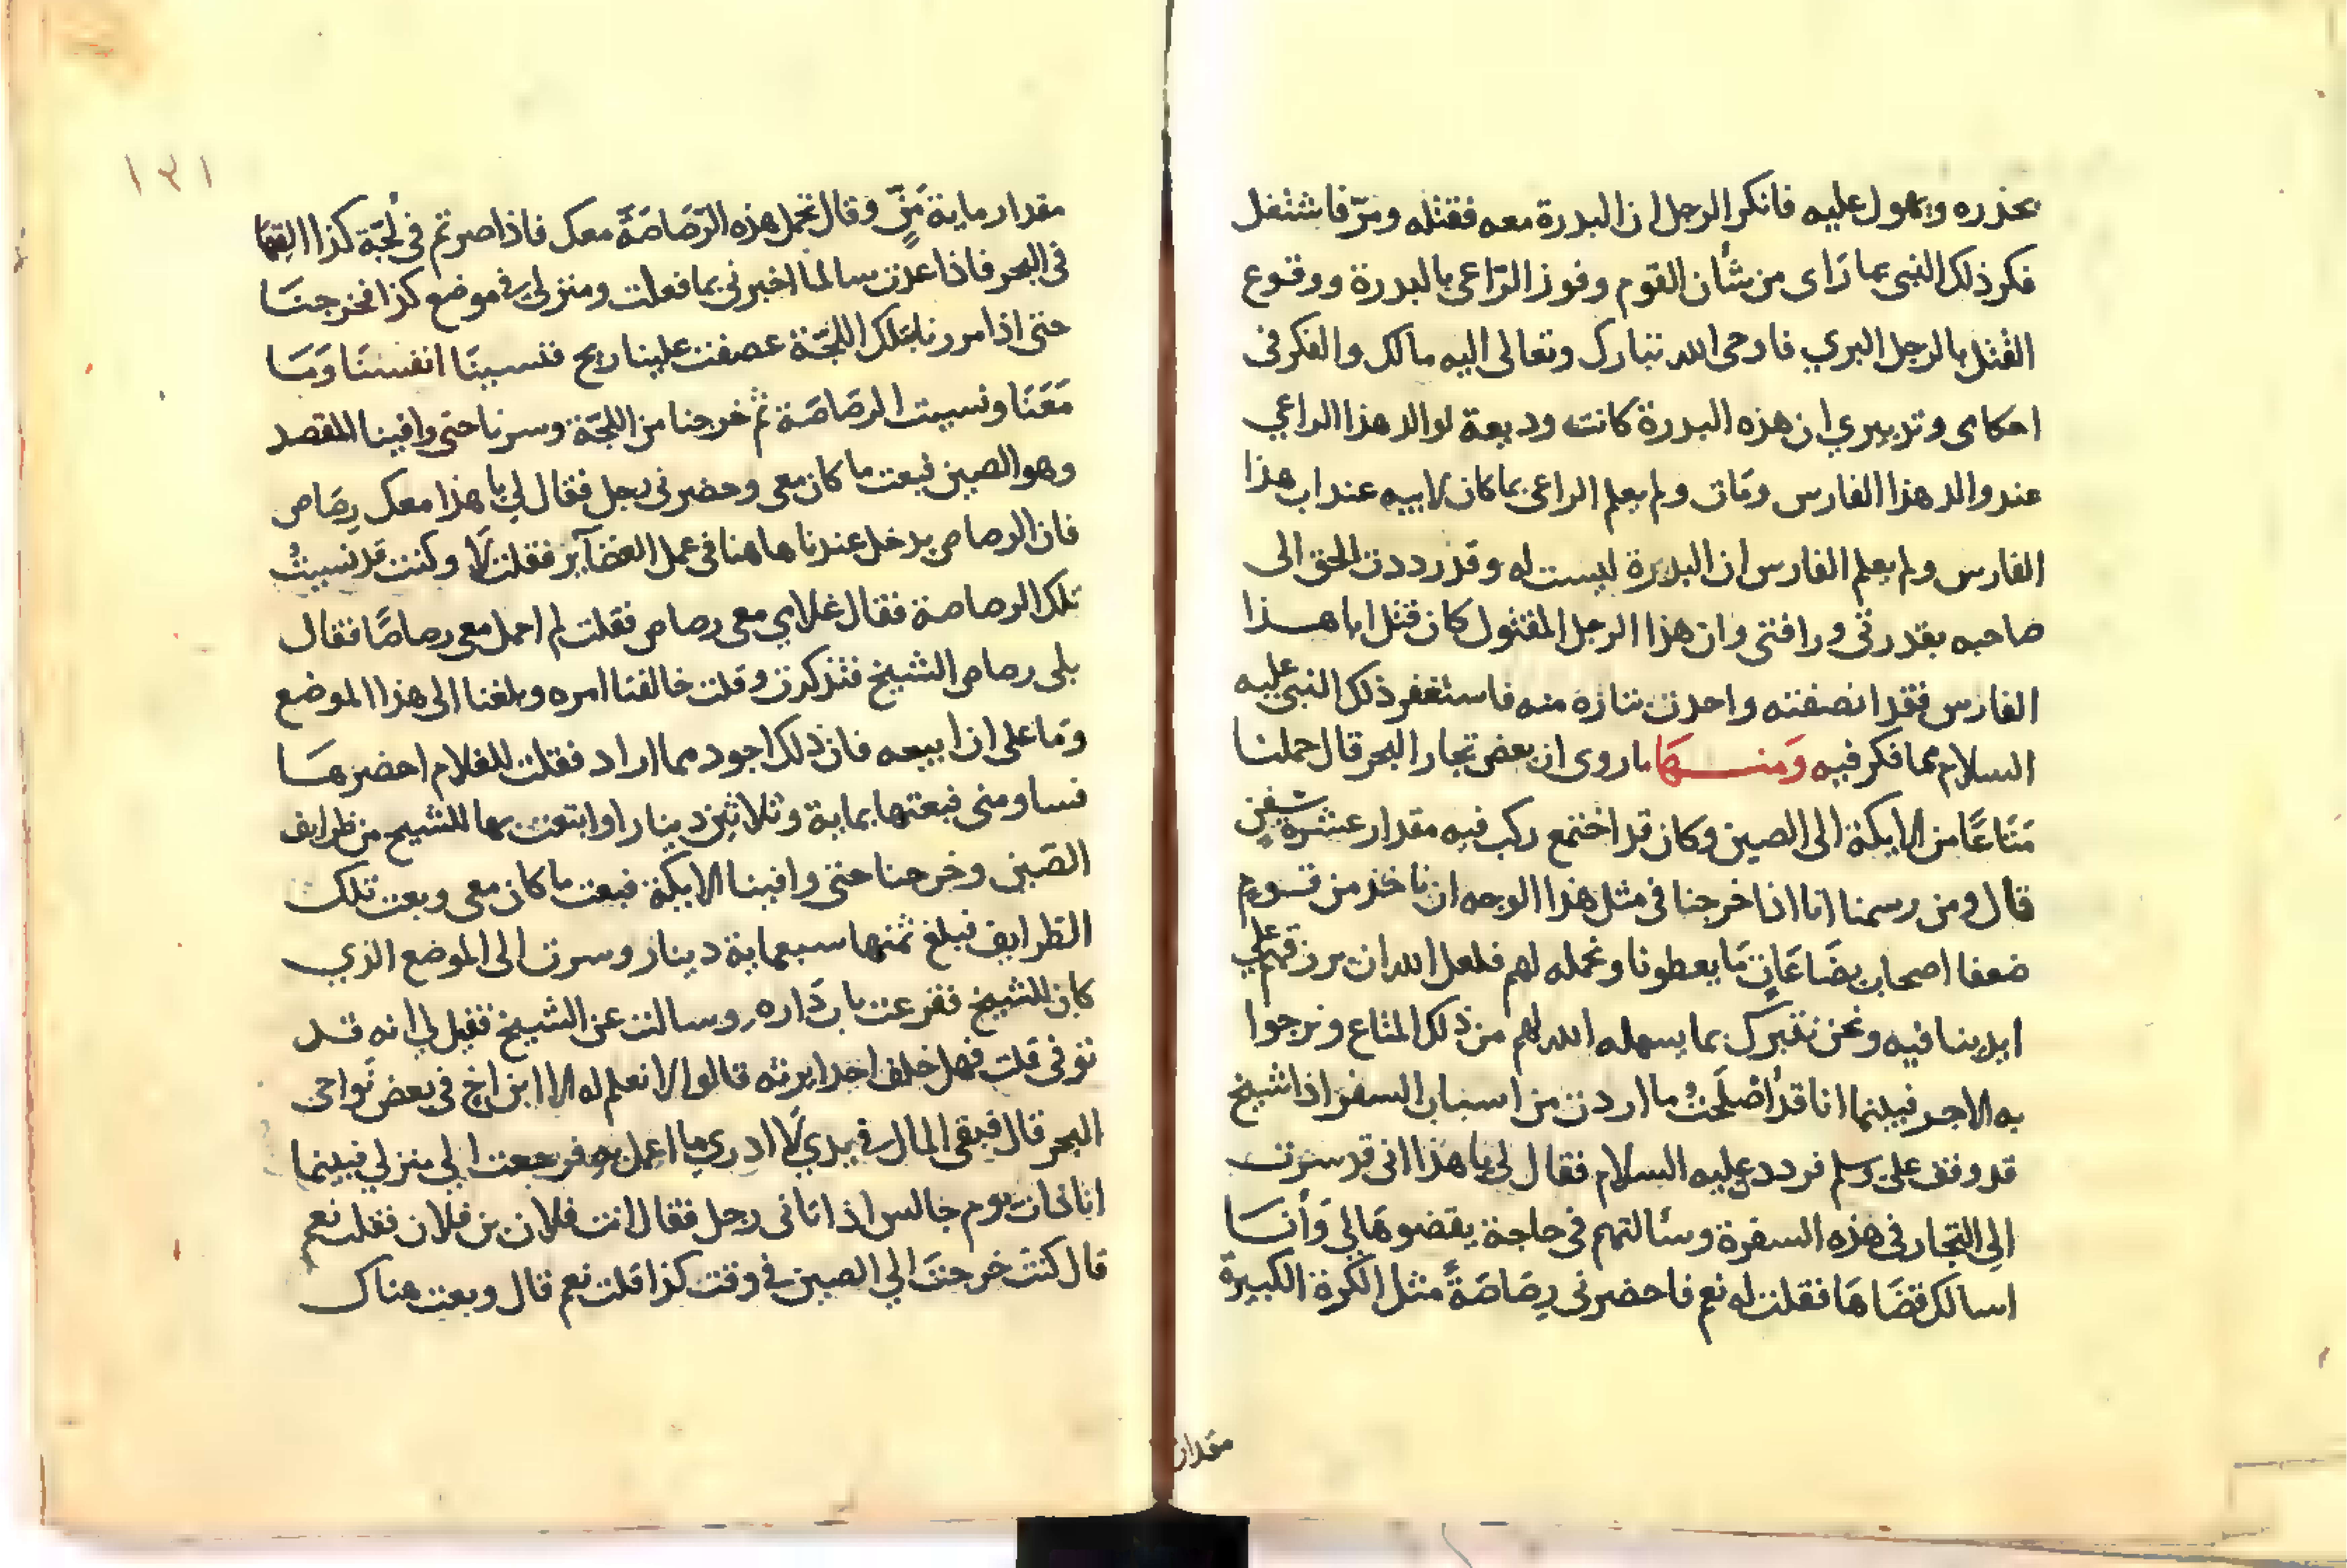 يحذره ويهول عليه فانكر الرجل ان البدرة معه فقتله ومرّ فاشتغل
فكر ذلك النبى بما رَاى من شأن القوم وفوز الرّاعى بالبدرة ووقوع
القتل بالرجل البري فاوحى الله تبارك وتعالى اليه مالك والفكر فى
احكامى وتدبيري ان هذه البدرة كانت وديعة لوالد هذا الراعي
عند والد هذا الفارس ومَات ولم يعلم الراعى بما كان لابيه عند اب هذا
الفارس ولم يعلم الفارس ان البدرة ليست له وقد رددت الحق الى
صاحبه بقدرتى ورافتى وان هذا الرجل المقتول كان قتل ابا هذا
الفارس فقد انصفته واخذت بثاره منه فاستغفر ذلك النبى عليه
السلام مما فكر فيه وَمنها ما روى ان بعض تجار البحر قال حملنا
مَتَاعًا من الايكة الى الصين وكان قد اجتمع ركب فيه مقدار عشرة سفن
قال ومن رسمنا انا اذا خرجنا فى مثل هذا الوجه ان ناخذ من قوم
ضعفا اصحاب بضَاعَاتٍ مَا يعطونا ونحمله لهم فلعل الله ان يرزقهم على
ايدينا فيه ونحن نتبرك بما يسهله الله لهم من ذلك المتاع ونرجوا
به الاجر فبينما انا قد أصْلَحْتُ ما اردت من اسباب السفر اذا شيخ
قد وقف على وسلم فرددت عليه السلام فقال لى يا هذا انى قد سرت
الى التجار فى هذه السفرة وسألتهم فى حاجة يقضوهَا لي وَأنَا
اسالك قضَاهَا فقلت له نعم فاحضرنى رِصَاصَةً مثل الكرة الكبيرة
مقدار
١٣١
مقدار ماية مَنٍّ وقال تحمل هذه الرّصَاصَة معك فاذا صرتم فى لُجّة كذا القها
فى البحر فاذا عدت سالما اخبرنى بما فعلت ومنزلى فى موضع كذا فخرجنَا
حتى اذا مررنا بتلك اللجّة عصفت علينا ريح فنسينَا انفسنَا وَمَا
مَعَنَا ونسيت الرصَاصَة ثم خرجنا من اللجّة وسرنا حتى وافينا المقصد
وهو الصين فبعت ما كان معى وحضرنى رجل فقال لي يا هذا معك رِصَاص
فان الرصاص يدخل عندنا هاهنا فى عمل الغضآير فقلت لَا وكنت قد نسيتُ
تلك الرصاصة فقال غلامي معى رصاص فقلت لم احمل معى رصاصًا فقال
بلى رصاص الشيخ فتذكرت وقلت خالفنا امره وبلغنا الى هذا الموضع
ومَا على ان ابيعه فان ذلك اجود مما اراد فقلت للغلام احضرهَا
فساومنى فبعتها بماية وثلاثين دينارا وابتعت بها للشيخ من ظرايف
الصّين وخرجنا حتى وافينا الايكة فبعت ما كان معى وبعت تلك
الظرايف فبلغ ثمنها سبعماية دينار وسرت الى الموضع الذي
كان للشيخ فقرعت باب دَاره وسالت عن الشيخ فقيل لي انه قد
توفى قلت فهل خلف احدا يرثه قالوا لا نعلم له الا ابن اخ فى بعض نَواحى
البحر قال فبقى المال فى يدي لَا ادري ما اعمل به فرجعت الي منزلي فبينما
انا ذات يوم جالس اذ اتانى رجل فقال انت فلان بن فلان فقلت نعم
قال كنت خرجتَ الي الصين فى وقت كذا قلت نعم قال وبعت هناك